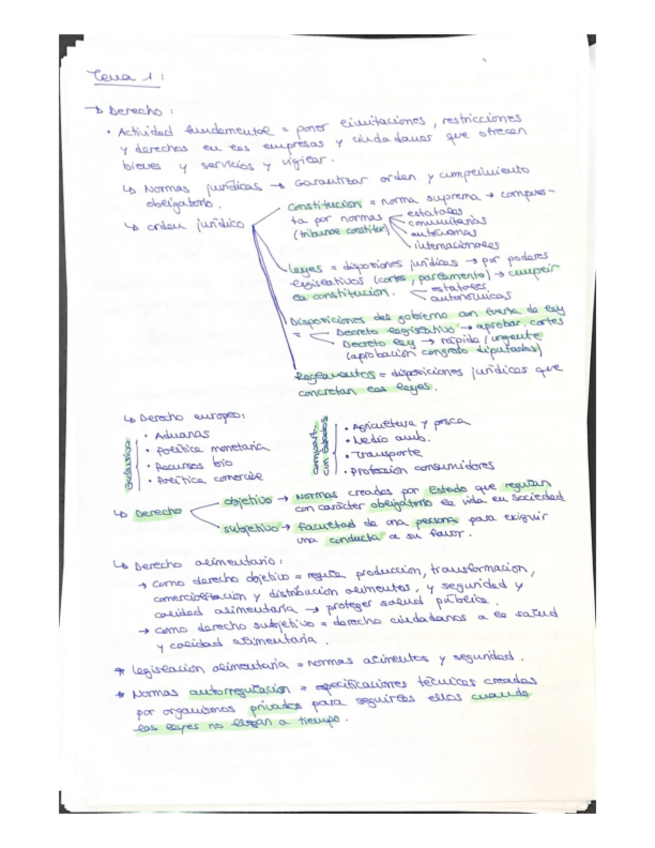 Tema 1:
→ Derecho:
• Actividad fundamental = poner limitaciones, restricciones
y derechos en las empresas y ciudadanos que ofrecen
bienes y servicios y vigilar.
↳ Normas jurídicas → Garantizar orden y cumplimiento
obligatorio.
↳ orden jurídico
Constitución = norma suprema → compues-
ta por normas
(tribunal constituc)
estatales
comunitarias
autonomas
internacionales
Leyes = disposiones jurídicas → por poderes
legislativos (cortes, parlamento) → cumplir
la constitución.
estatales
autonómicas
Disposiciones del gobierno con fuerza de ley
= Decreto legislativo → aprobar cortes
Decreto ley → rápida/urgente
(aprobación congreso diputados)
Reglamentos = disposiciones jurídicas que
concretan las leyes.
↳ Derecho europeo:
exclusiva
• Aduanas
• Política monetaria
• Recursos bio
• Política comercial
compart.
con estados
• Agricultura y pesca
• Medio amb.
• Transporte
• Protección consumidores
↳ Derecho
objetivo → Normas creadas por Estado que regulan
con carácter obligatorio la vida en sociedad
subjetivo → Facultad de una persona para exiguir
una conducta a su favor.
↳ Derecho alimentario:
→ como derecho objetivo = regula producción, transformación,
comercialización y distribución alimentos, y seguridad y
calidad alimentaria → proteger salud pública.
→ como derecho subjetivo = derecho ciudadanos a la salud
y calidad alimentaria.
* Legislación alimentaria = normas alimentos y seguridad.
* Normas autorregulación = especificaciones técnicas creadas
por organismos privados para seguirlas ellos cuando
las leyes no llegan a tiempo.